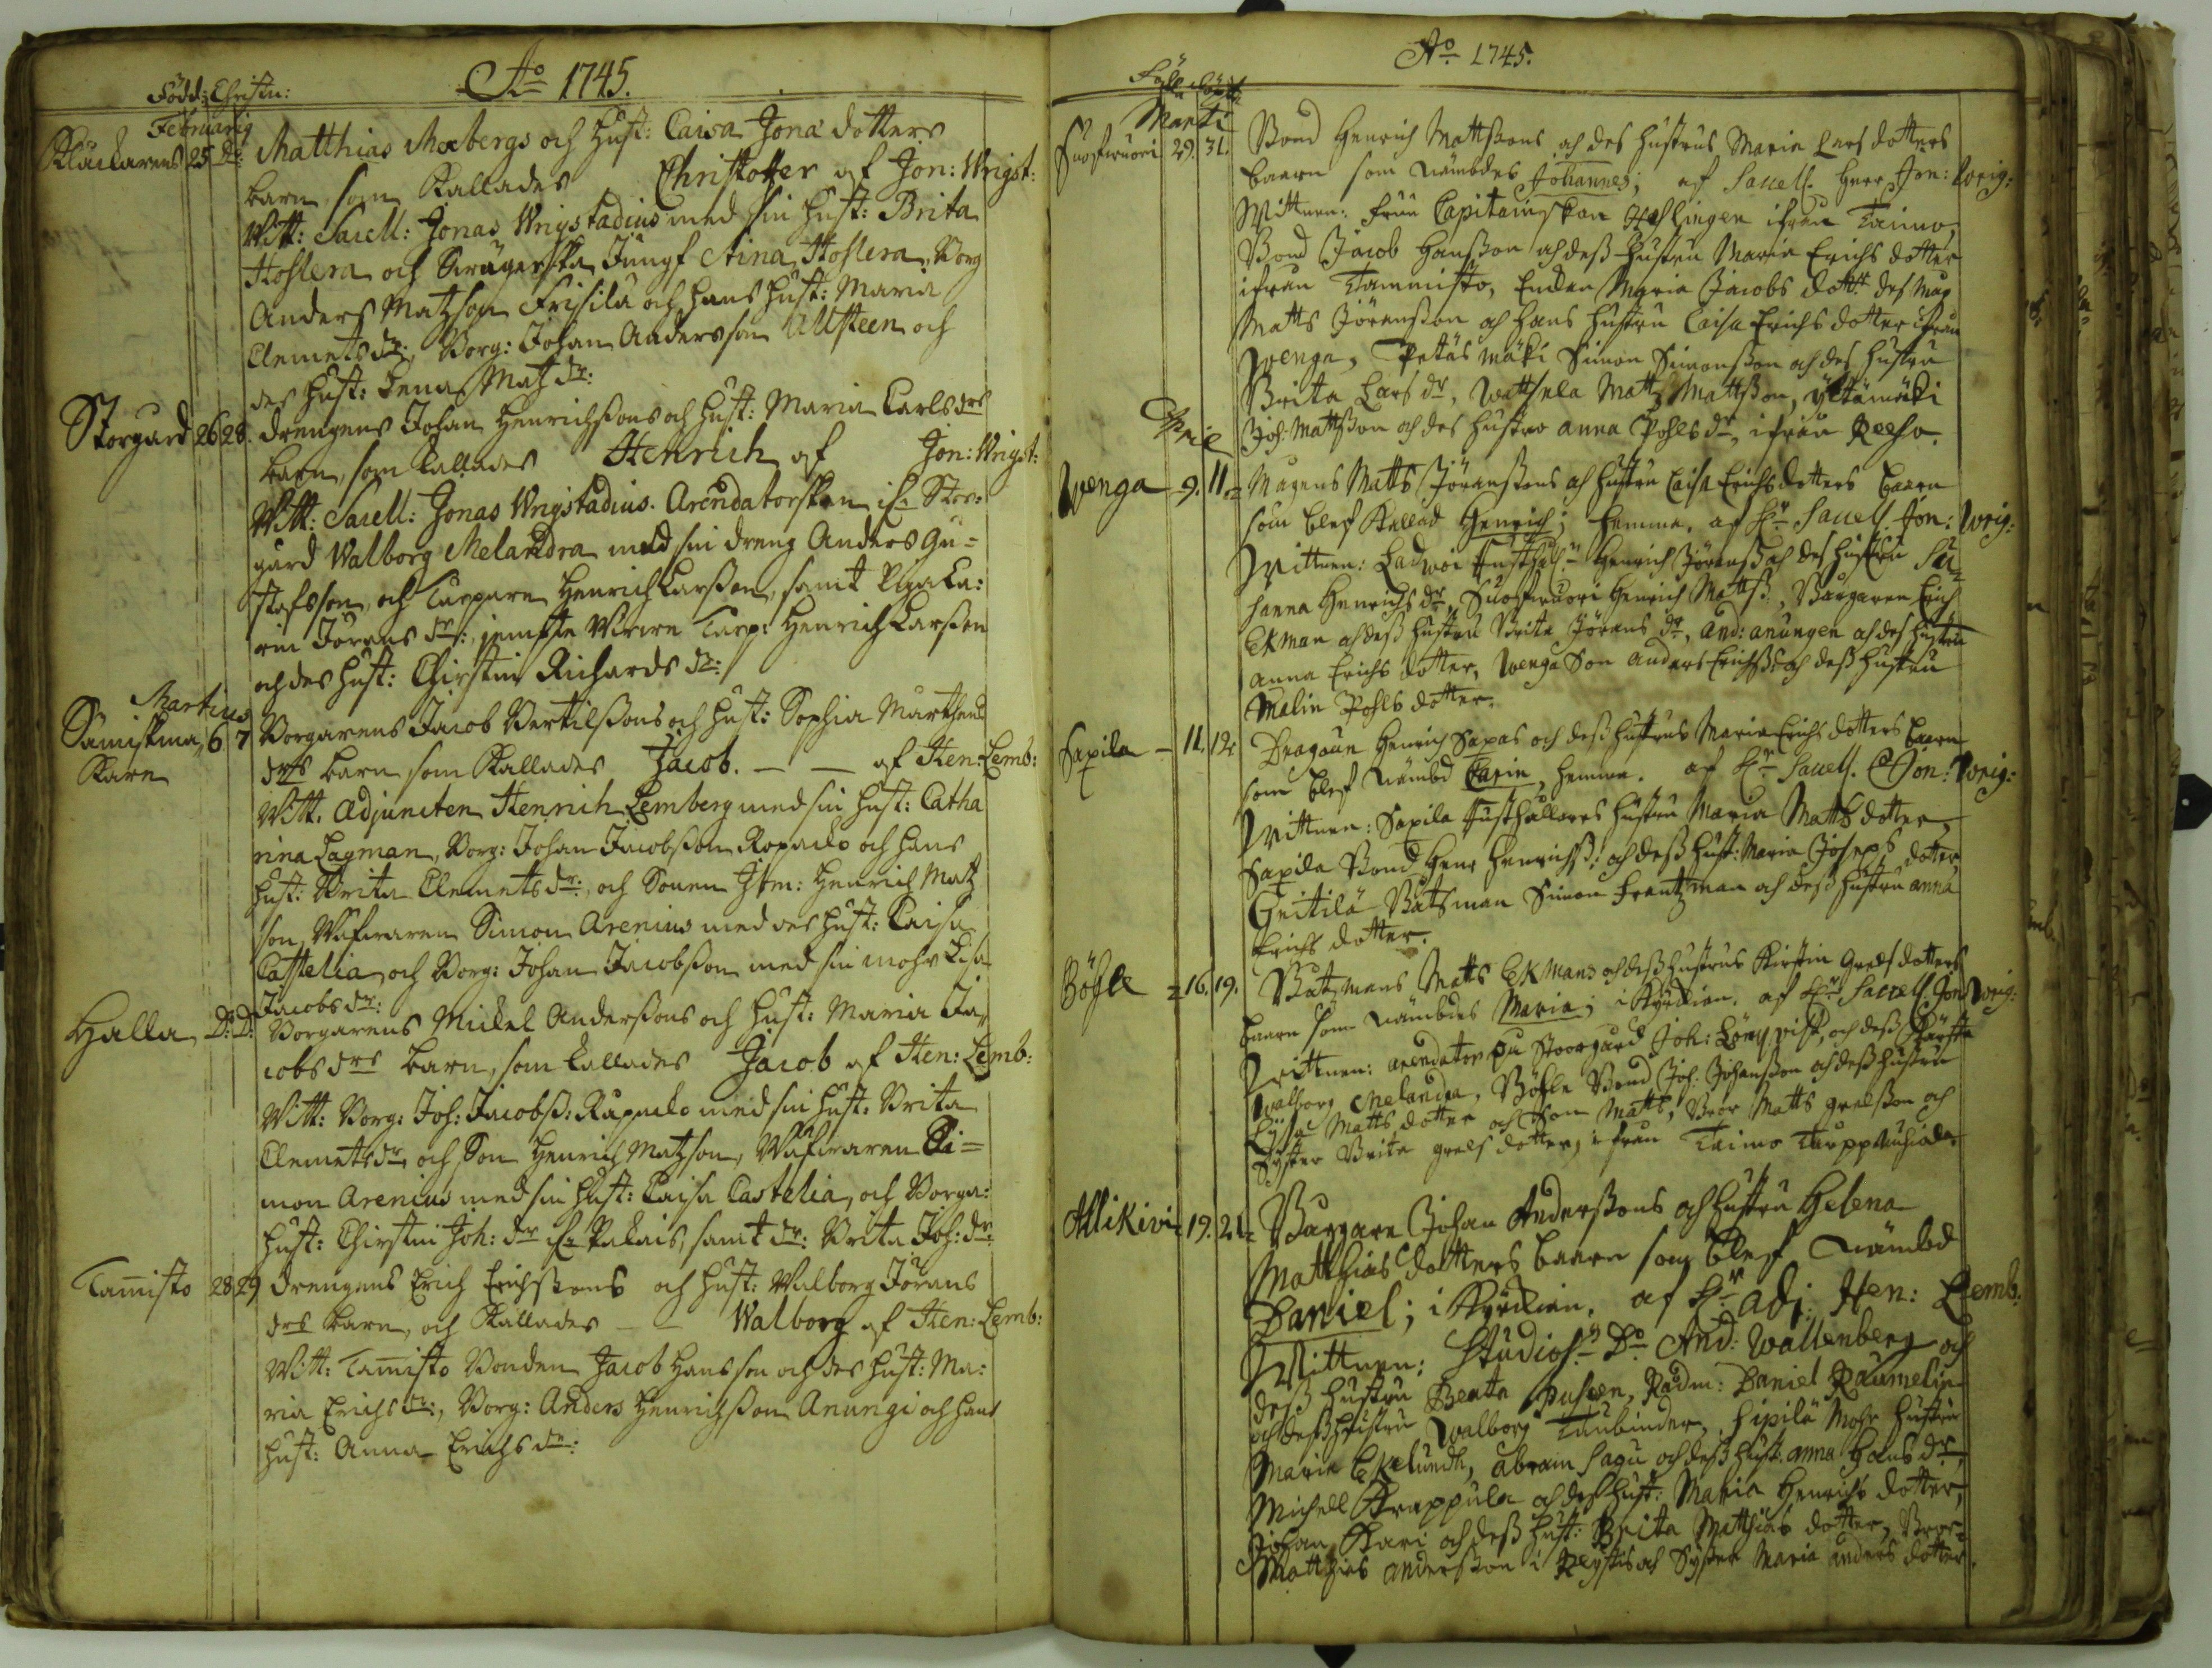 Aō 1745.
Född: Christn:
Februarij
Klåckarens 25 do: Matthias Moebergs och Hust: Caisa Jonæ dotters
barn som kallades Christoffer af Jon: Wrigst:
Witt: Sacell: Jonas Wrigstadius med sin Hust: Brita
Hoslera och Jungf Stina Hoslera, Borg
Anders Matzson Frisilä och hans Hust: Maria
Clemetsdr:, Borg: Johan Andersson Allsteen och
des Hust: Lena Matzdr:
Storgård 26 28. Drengens Johan Henrichssons och Hust: Maria Carlsdrs
barn, som kallades Henrich af Jon: Wrigst:
Witt: Sacell: Jonas Wrigstadius. Arendatorskan ifr Stor-
gård Walborg Melandra med sin dreng Anders Gu-
stafsson, och Torparen Henrich Larsson, samt Piga Ca:
rin Jörans dr:, jemste Torp: Henrich Larsson
och des Hust: Christin Richards dr:
Martius
Sämiskma 6 7 Borgarens Jacob Bertilssons och Hust: Sophia Marthens
karn drs barn som kallades Jacob. — — af Hen: Lemb:
Witt. Adjuncten Henrich Lemberg med sin Hust: Catha
rina Lagman, Borg: Johan Jacobsson Rapacko och hans
Hust: Brita Clemetsdr:, och Sonen Henrich Matz
son, Wäfwaren Simon Arenius med des Hust: Caisa
Castelia, och Borg: Johan Jacobsson med sin mohr Lisa
Jacobs dr:
Halla D: D: Borgarens Mickel Anderssons och Hust: Maria Ja-
cobs drs barn, som kallades Jacob af Hen: Lemb:
Witt: Borg: Joh: Jacobss: Rapacko med sin Hust: Brita
Clemetsdr, och Son Henrich Matzson, Wäfwaren Si=
mon Arenius med sin Hust: Caisa Castelia, och Borga:
Hust: Christin Joh: dr ifr Palais, samt dr: Brita Joh: dr:
Tamisto 28 29 Drengens Erich Erichssons och Hust: Walborg Jörans
drs barn, och kallades — — Walborg af Hen: Lemb:
Witt: Tamisto Bonden Jacob Hansson och des Hust: Ma:
ria Erichs dr:, Borg: Anders Henrichsson Anungi och hans
Hust: Anna Erichs dr:
Aō 1745.
Marti
29. 31. Bond Henrich Mattssons och des hustrus Maria Lars dotters
baarn som nämbdes Johannes; af Sacell. Herr Jon: Wrig:
Wittnen: Fruu Capitainskan ifrån Taimo,
Bond Jacob Hansson och dess hustru Maria Erichs dotter
ifrån Tammisto, Maria Jacobs dottr des Mag
Matts Jöransson och hans hustru Caisa Erichs dotter ifrån
Wenga, Petäs mäki Simon Simonsson och des hustru
Brita Lars dr, Mattz Mattsson, Ylitämäki
Joh: Mattsson och des hustro Anna Pohls dr, ifrån
Aprie
Wenga 9. 11. Magens Matts Jöranssons och hustru Caisa Erichs dotters baarn
som blef kallad Henrich; hemma. af Hr Sacell. Jon: Wrig:
Wittnen: Henrich Jöranss och des hustru Su
sanna Henrichs dr, Henrich Mattss:, Borgaren Erich
Ekman och dess hustru Brita Jörans dr, And: Anungen och des hustru
Anna Erichs dotter, Wenga Son Anders Erichss: och dess hustru
Malin Pohls dotter.
Sapila — 11. 12. Dragoun Henrich Sapas och dess hustrus Maria Erichs dotters baarn
som blef nämbd Carin, hemma. af Hr Sacell. Jon: Wrig:
Wittnen: Sapila Rusthållares hustru Maria Matts dotter,
Sapila Bond Henr Henrichss: och dess hust: Maria Josephs dotter
Båtsman Simon Frentzman och dess hustru Anna
Erichs dotter.
Böhle 16. 19. Båtzmans Matts Ekmans och dess hustrus Kirstin Grels dotters
baarn som nämbdes Maria; i Kyrckian. af Hr Sacell. Jon: Wrig:
Wittnen: Arendator på Stoorgård Joh: och dess
Walborg Melandra, Böhle Bond Joh: Johansson och dess hustru
Lysa Matts dotter och Son Matts, Bror Matts Grelsson och
Syster Brita Grels dotter, ifrån Taimo
Allikivi 19. 21. Borgare Johan Anderssons och hustru Helena
Matthias dotters baarn som blef nämbd
Daniel; i Kyrckian. af Hr Adj: Hen: Lemb:
Wittnen: Studios: Do And: Wallenberg och
dess hustru Beata Pulsen, Rådm: Daniel Raumelin
och dess hustru Walborg Taubinder, hustru
Maria Ekelundh, Abram Sagu och dess hust: Anna Hans dr,
Michell Krappula och dess hust: Maria Henrichs dotter,
Johan Kari och dess hust: Brita Matthias dotter, Bror
Matthias Andersson i och Syster Maria Anders dotter.